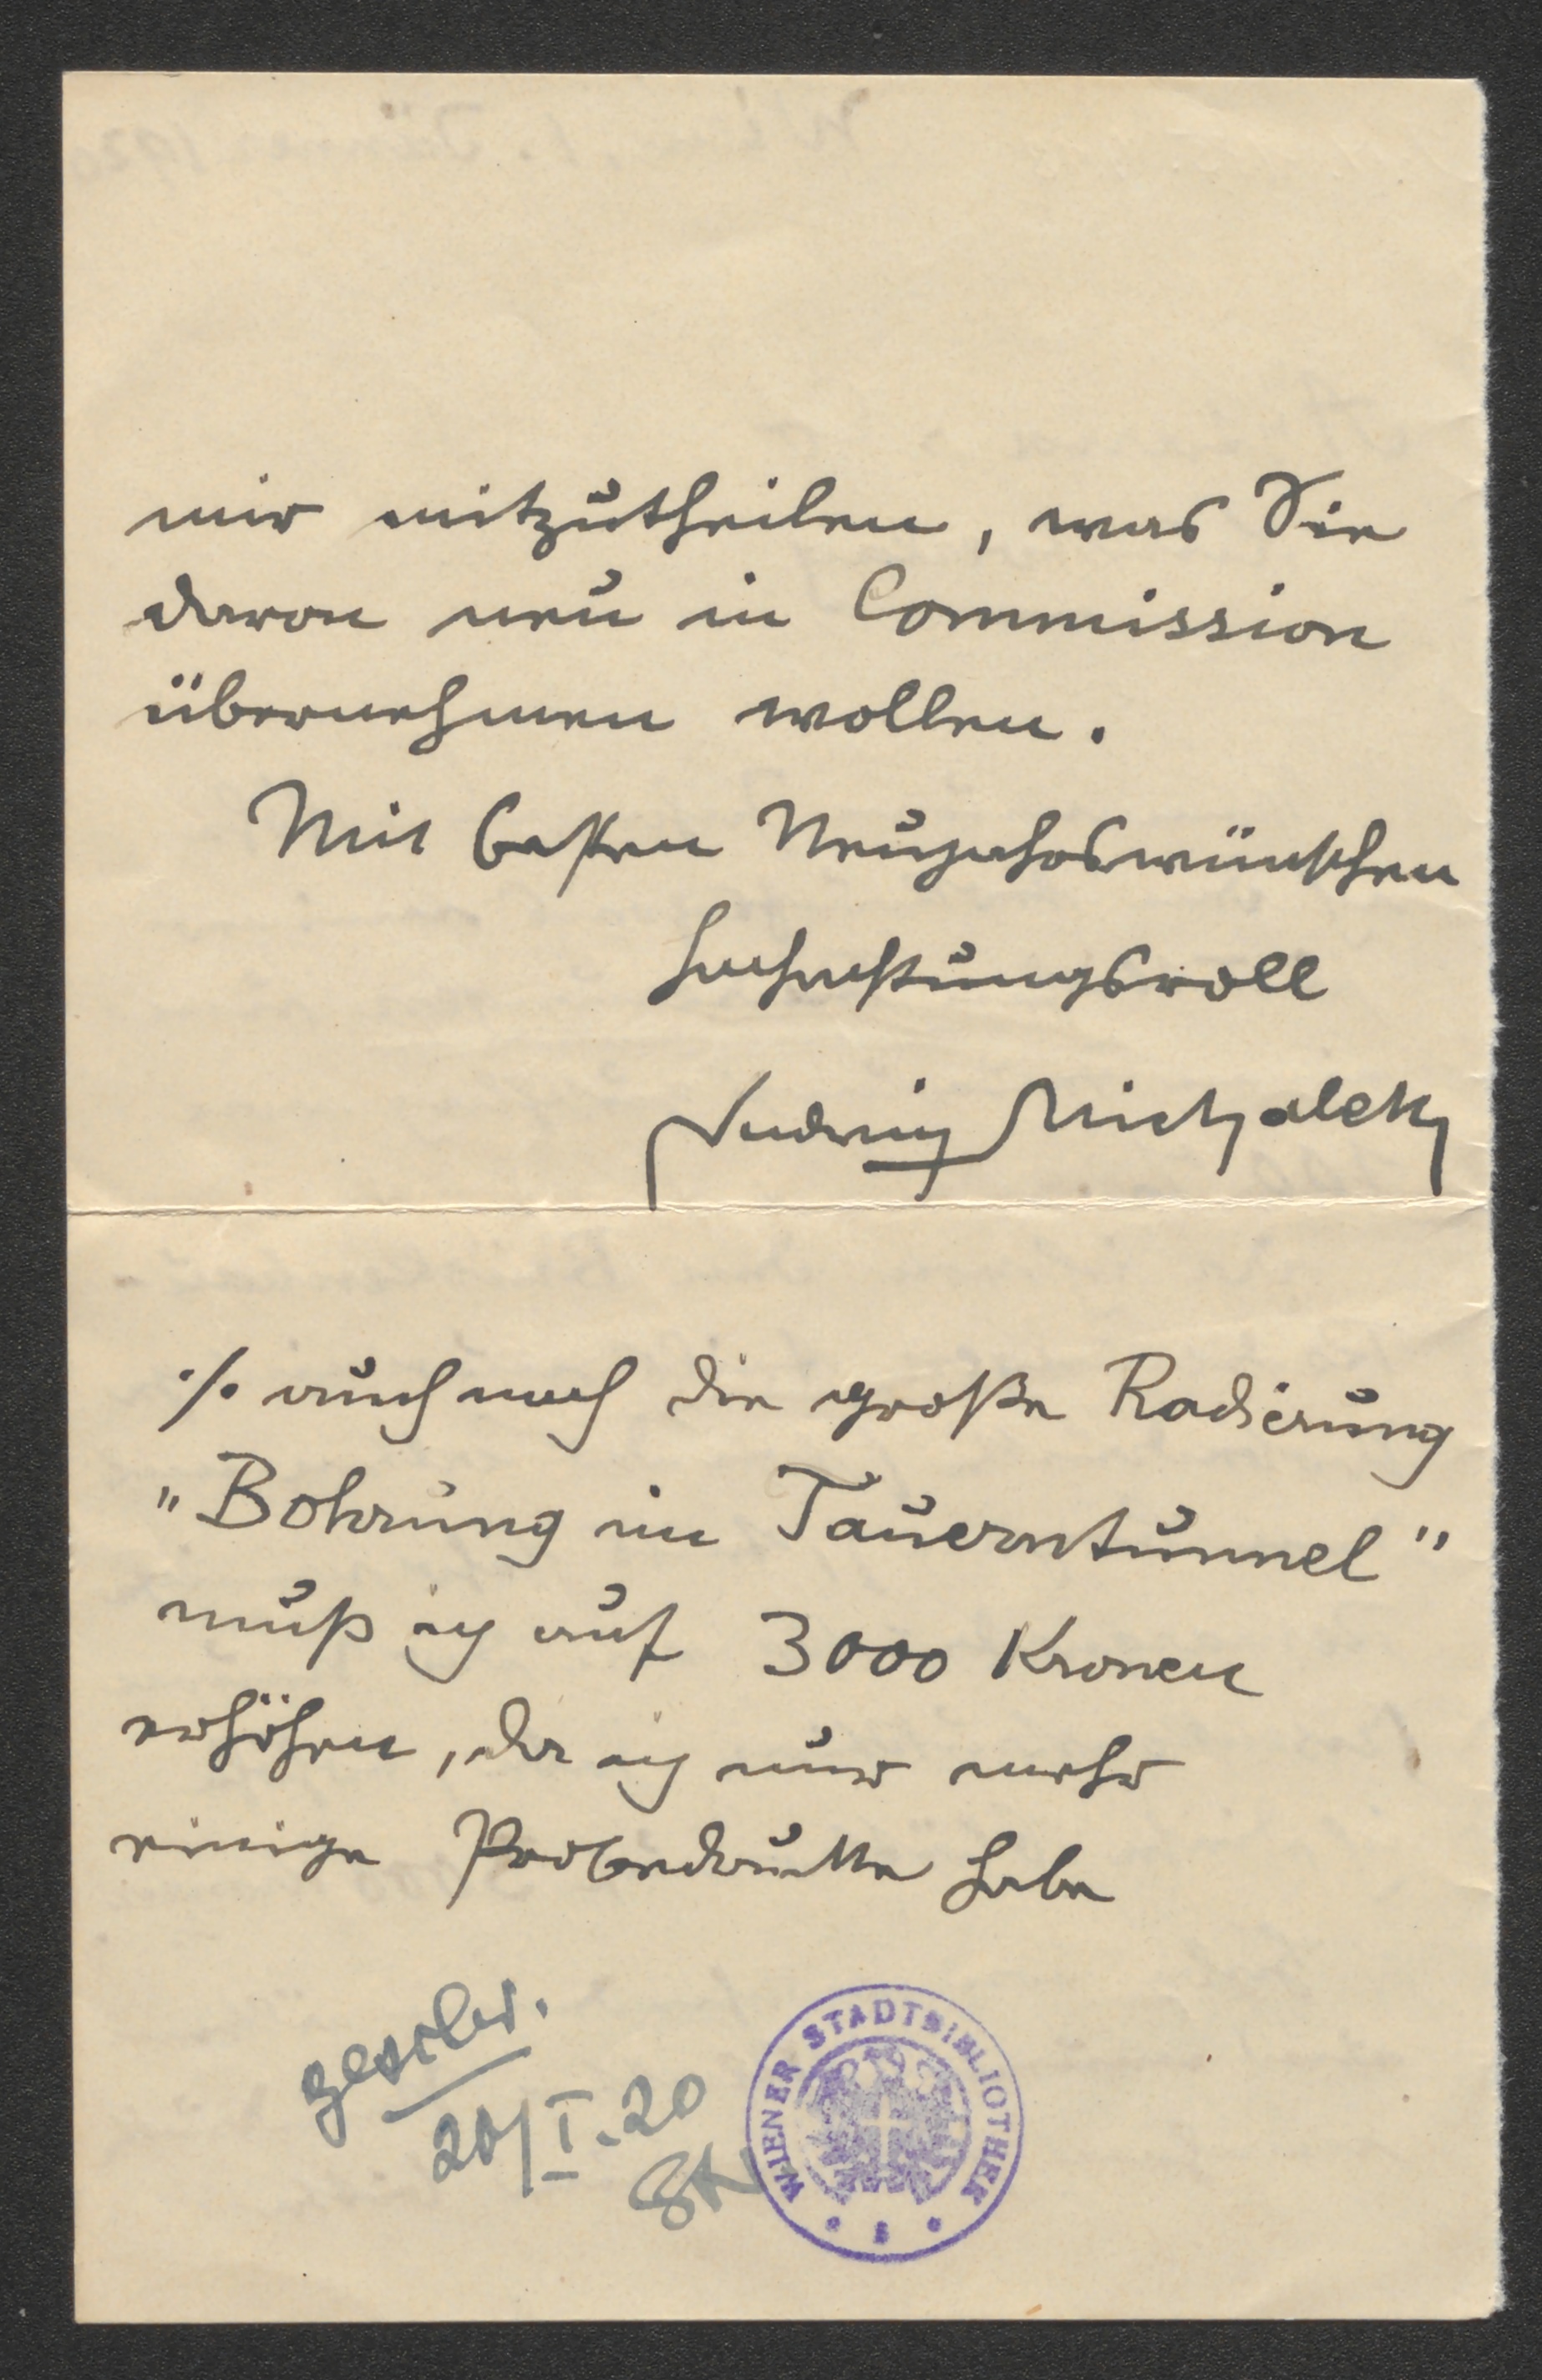 mir mitzutheilen, was Sie
davon neu in Commission
übernehmen wollen.
Mit besten Neujahrswünschen
hochachtungsvoll
Ludwig Michalek
./. auch noch die große Radierung
"Bohrung im Tauerntunnel"
muß ich auf 3000 Kronen
erhöhen, da ich nur mehr
einige Probedrucke habe
geschr.
20/I.20
WIENER STADTBIBLIOTHEK